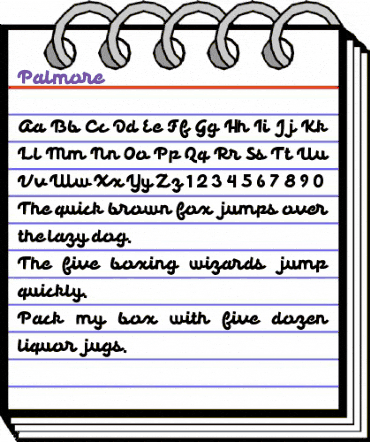 Palmore
Aa Bb Cc Dd Ee Ff Gg Hh Ii Jj Kk
Ll Mm Nn Oo Pp Qq Rr Ss Tt Uu
Vv Ww Xx Yy Zz 1 2 3 4 5 6 7 8 9 0
The quick brown fox jumps over
the lazy dog.
The five boxing wizards jump
quickly.
Pack my box with five dozen
liquor jugs.